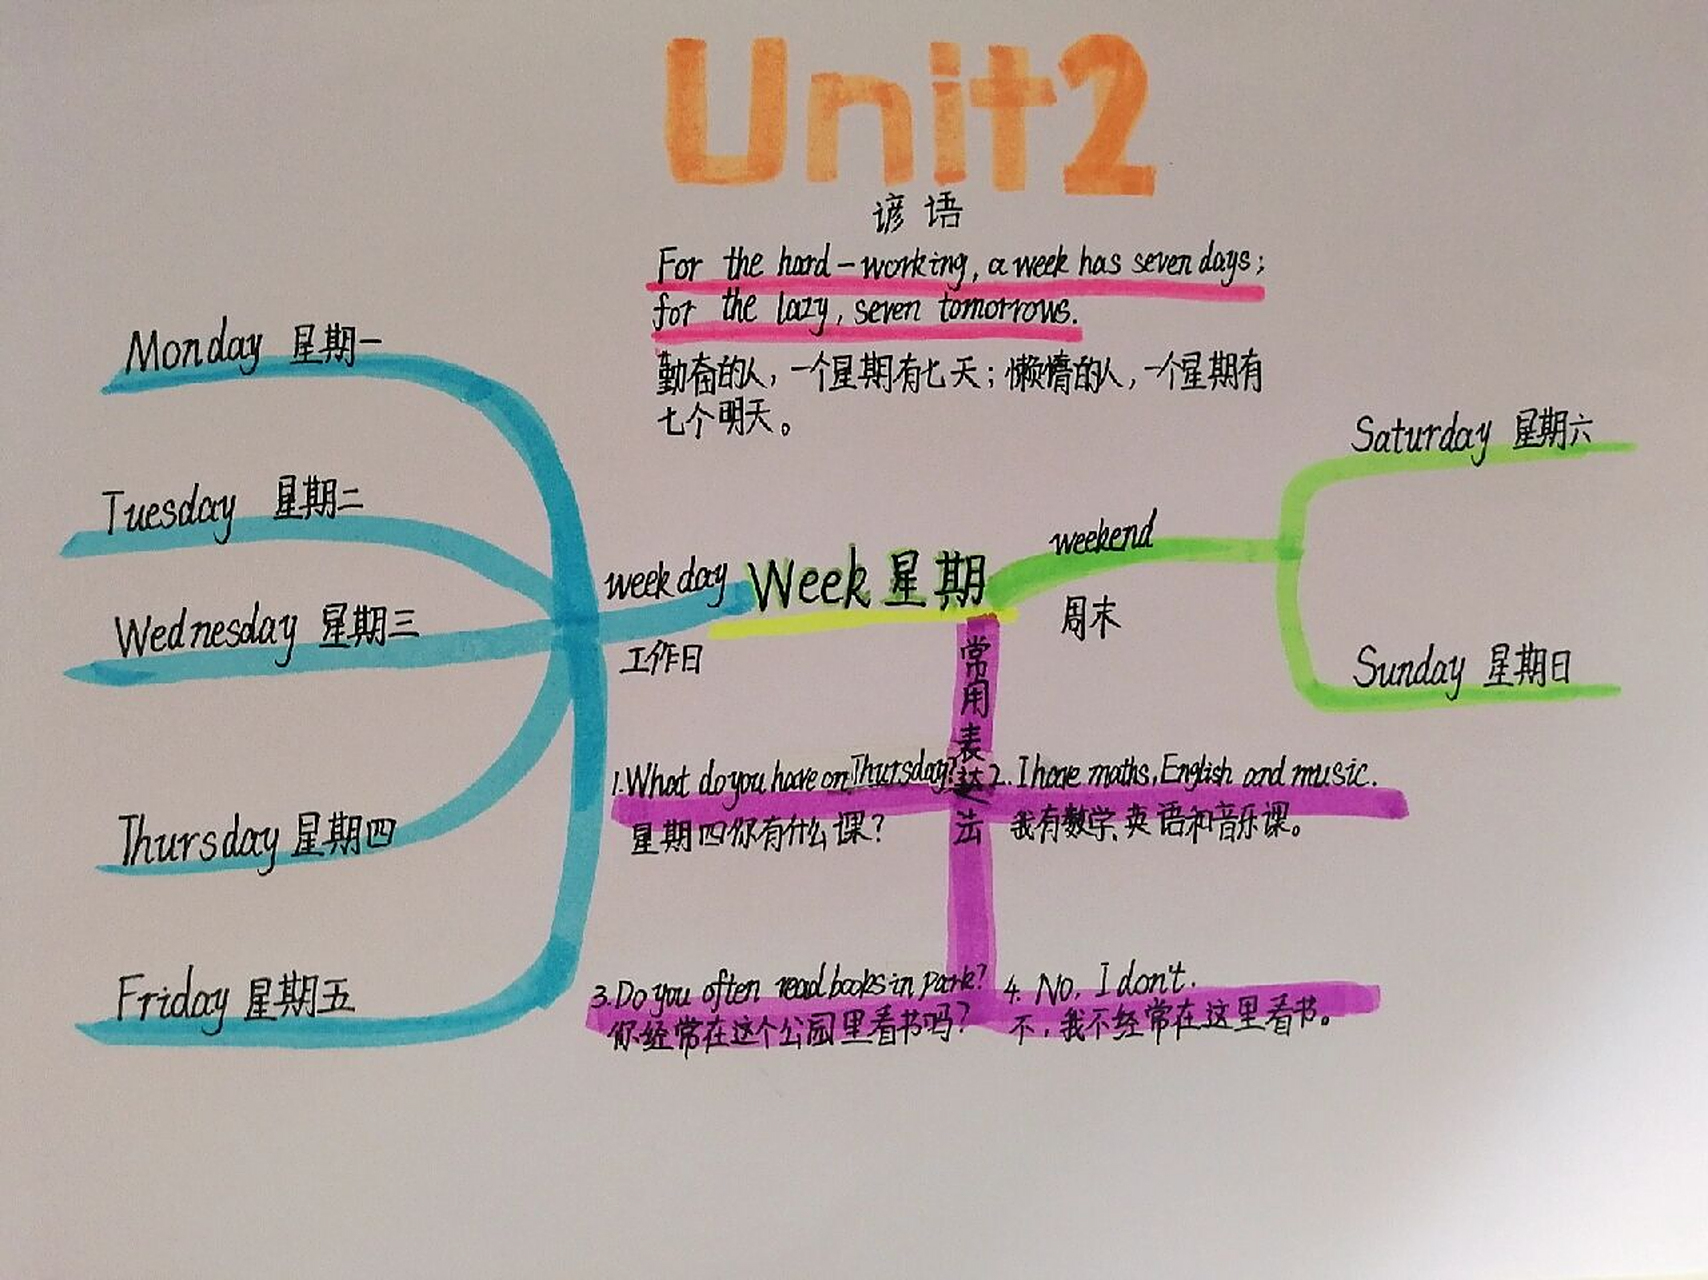 Unit2
谚语
For the hard-working, a week has seven days;
for the lazy, seven tomorrows.
勤奋的人，一个星期有七天；懒惰的人，一个星期有
七个明天。
Monday 星期一
Tuesday 星期二
Wednesday 星期三
Thursday 星期四
Friday 星期五
week day
工作日
Week 星期
weekend
周末
Saturday 星期六
Sunday 星期日
常用表达法
1.What do you have on Thursday?
星期四你有什么课？
2. I have maths, English and music.
我有数学、英语和音乐课。
3.Do you often read books in park?
你经常在这个公园里看书吗？
4. No, I don't.
不，我不经常在这里看书。